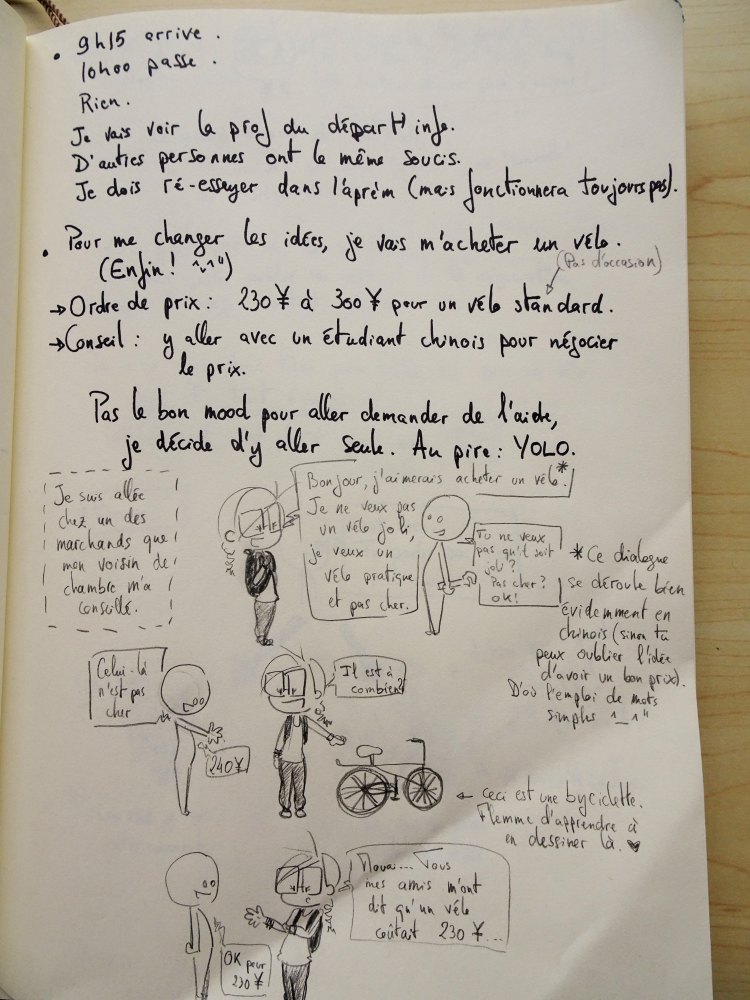 • 9h15 arrive.
10h00 passe.
Rien.
Je vais voir la prof du départt info.
D'autres personnes ont le même soucis.
Je dois ré-essayer dans l'aprèm (mais fonctionnera toujours pas).
• Pour me changer les idées, je vais m'acheter un vélo.
(Enfin! ^.^")
(Pas d'occasion)
→Ordre de prix : 230 ¥ à 300 ¥ pour un vélo standard.
→Conseil : y aller avec un étudiant chinois pour négocier
le prix.
Pas le bon mood pour aller demander de l'aide,
je décide d'y aller seule. Au pire : YOLO.
Je suis allée
chez un des
marchands que
mon voisin de
chambre m'a
conseillé.
Bonjour, j'aimerais acheter un vélo.*
Je ne veux pas
un vélo joli,
je veux un
vélo pratique
et pas cher.
Tu ne veux
pas qu'il soit
joli ?
Pas cher ?
OK!
*Ce dialogue
se déroule bien
évidemment en
chinois (sinon tu
peux oublier l'idée
d'avoir un bon prix).
D'où l'emploi de mots
simples ^_^"
Celui-là
n'est pas
cher
Il est à
combien?
240¥
← ceci est une byciclette.
Flemme d'apprendre à
en dessiner là. ♥
Mouai... Vous
mes amis m'ont
dit qu'un vélo
coûtait 230 ¥...
OK pour
230 ¥